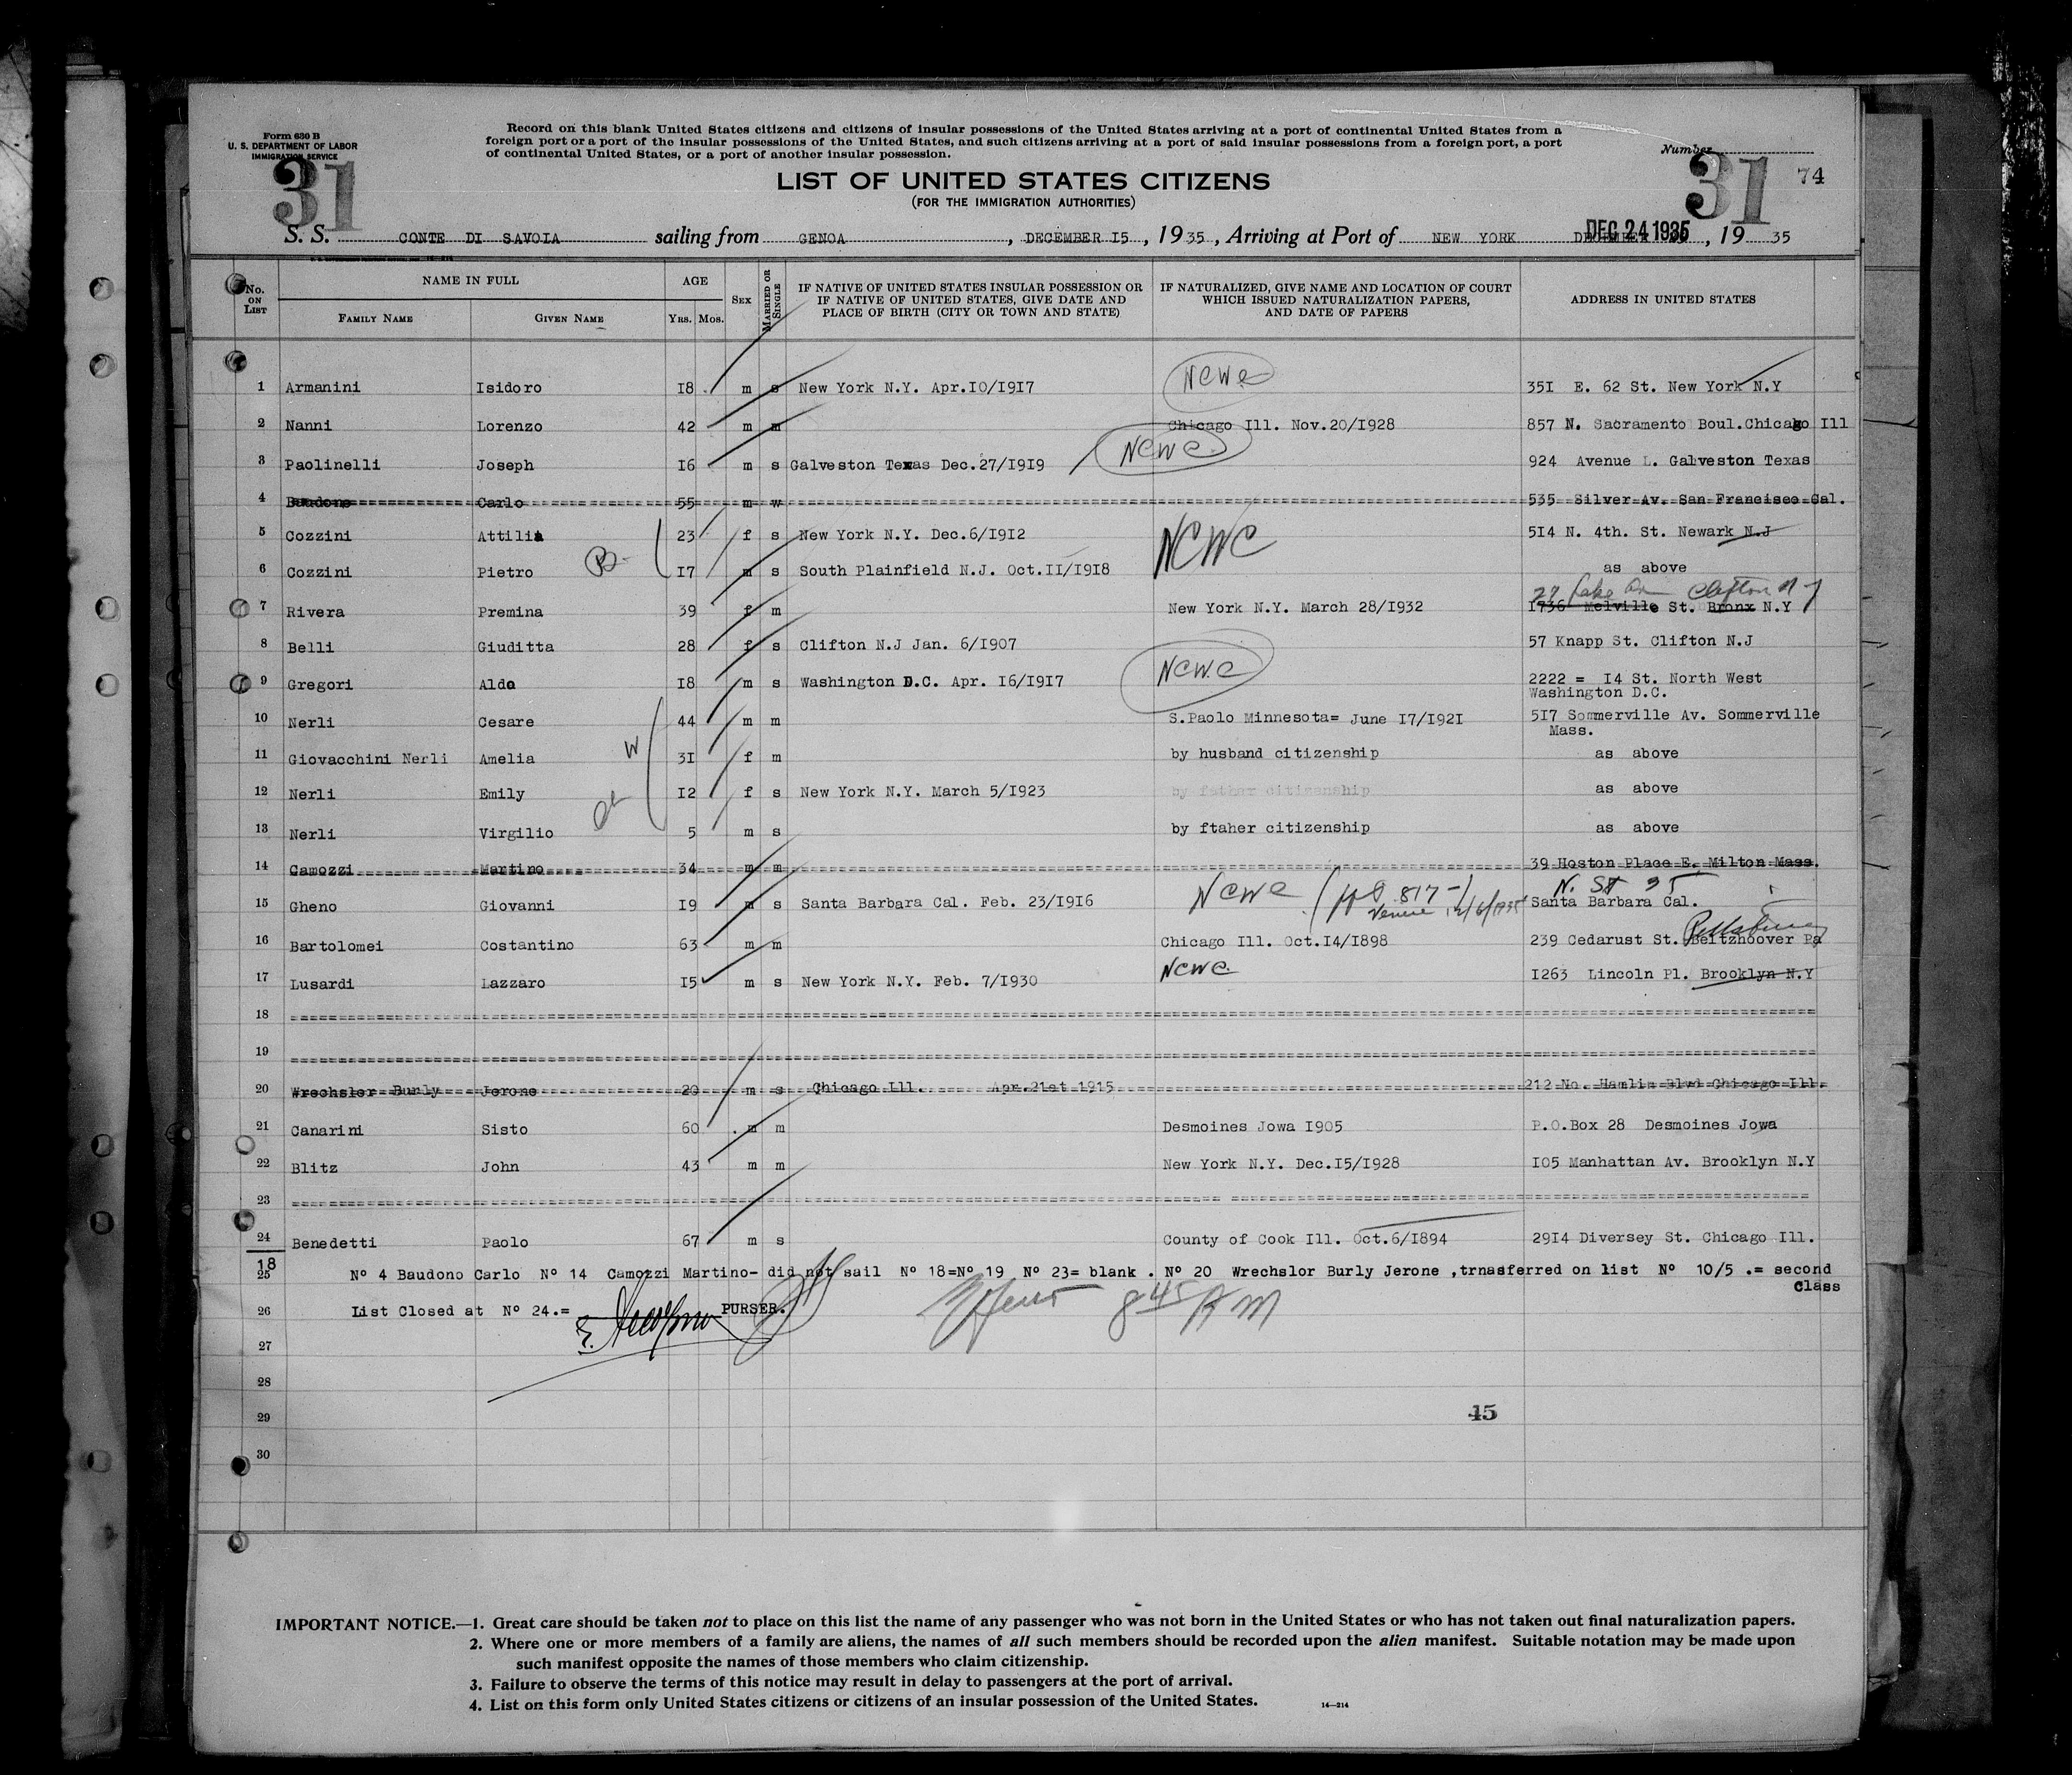 Form 630 B
U. S. DEPARTMENT OF LABOR
IMMIGRATION SERVICE
31
Record on this blank United States citizens and citizens of insular possessions of the United States arriving at a port of continental United States from a
foreign port or a port of the insular possessions of the United States, and such citizens arriving at a port of said insular possessions from a foreign port, a port
of continental United States, or a port of another insular possession.
Number
31 74
LIST OF UNITED STATES CITIZENS
(FOR THE IMMIGRATION AUTHORITIES)
S. S. CONTE DI SAVOIA sailing from GENOA, DECEMBER I5, 1935, Arriving at Port of NEW YORK DEC 24 1935, 19 35
No. ON LIST NAME IN FULL AGE SEX MARRIED OR SINGLE IF NATIVE OF UNITED STATES INSULAR POSSESSION OR IF NATIVE OF UNITED STATES, GIVE DATE AND PLACE OF BIRTH (CITY OR TOWN AND STATE) IF NATURALIZED, GIVE NAME AND LOCATION OF COURT WHICH ISSUED NATURALIZATION PAPERS, AND DATE OF PAPERS ADDRESS IN UNITED STATES
FAMILY NAME GIVEN NAME YRS. MOS.
1 Armanini Isidoro I8 m s New York N.Y. Apr.IO/I9I7 NCWC 35I E. 62 St. New York N.Y
2 Nanni Lorenzo 42 m m Chicago Ill. Nov.20/I928 857 N. Sacramento Boul.Chicago Ill
3 Paolinelli Joseph I6 m s Galveston Texas Dec.27/I9I9 NCWC 924 Avenue L. Galveston Texas
4 Baudono Carlo 55 m w 535 Silver Av. San Francisco Cal.
5 Cozzini Attilia 23 f s New York N.Y. Dec.6/I9I2 NCWC 5I4 N. 4th. St. Newark N.J
6 Cozzini Pietro I7 m s South Plainfield N.J. Oct.II/I9I8 as above
27 Lake Av Clifton N J
7 Rivera Premina 39 f m New York N.Y. March 28/I932 I736 Melville St. Bronx N.Y
8 Belli Giuditta 28 f s Clifton N.J Jan. 6/I907 57 Knapp St. Clifton N.J
9 Gregori Aldo I8 m s Washington D.C. Apr. I6/I9I7 NCWC 2222 = I4 St. North West
Washington D.C.
10 Nerli Cesare 44 m m S.Paolo Minnesota= June I7/I92I 5I7 Sommerville Av. Sommerville
Mass.
11 Giovacchini Nerli Amelia W 3I f m by husband citizenship as above
12 Nerli Emily I2 f s New York N.Y. March 5/I923 by father citizenship as above
13 Nerli Virgilio 5 m s by ftaher citizenship as above
14 Camozzi Martino 34 m m 39 Hoston Place E. Milton Mass.
15 Gheno Giovanni I9 m s Santa Barbara Cal. Feb. 23/I9I6 NCWC 817 Santa Barbara Cal.
16 Bartolomei Costantino 63 m m Chicago Ill. Oct.I4/I898 239 Cedarust St. Beltzhoover Pa Pittsburg
17 Lusardi Lazzaro I5 m s New York N.Y. Feb. 7/I930 NCWC I263 Lincoln Pl. Brooklyn N.Y
18
19
20 Wrechsler Burly Jerone 20 m s Chicago Ill. Apr.21st 1915 212 No. Hamlin Blvd Chicago Ill.
21 Canarini Sisto 60 m m Desmoines Jowa I905 P.O.Box 28 Desmoines Jowa
22 Blitz John 43 m m New York N.Y. Dec.I5/I928 I05 Manhattan Av. Brooklyn N.Y
23
24 Benedetti Paolo 67 m s County of Cook Ill. Oct.6/I894 29I4 Diversey St. Chicago Ill.
18
25 Nº 4 Baudono Carlo Nº 14 Camozzi Martino- did not sail Nº 18=Nº 19 Nº 23= blank . Nº 20 Wrechslor Burly Jerone ,trnasferred on list Nº 10/5 .= second
Class
26 List Closed at Nº 24.= PURSER. 8 45 A M
27
28
29 45
30
IMPORTANT NOTICE.—1. Great care should be taken not to place on this list the name of any passenger who was not born in the United States or who has not taken out final naturalization papers.
2. Where one or more members of a family are aliens, the names of all such members should be recorded upon the alien manifest. Suitable notation may be made upon
such manifest opposite the names of those members who claim citizenship.
3. Failure to observe the terms of this notice may result in delay to passengers at the port of arrival.
4. List on this form only United States citizens or citizens of an insular possession of the United States. 14—214